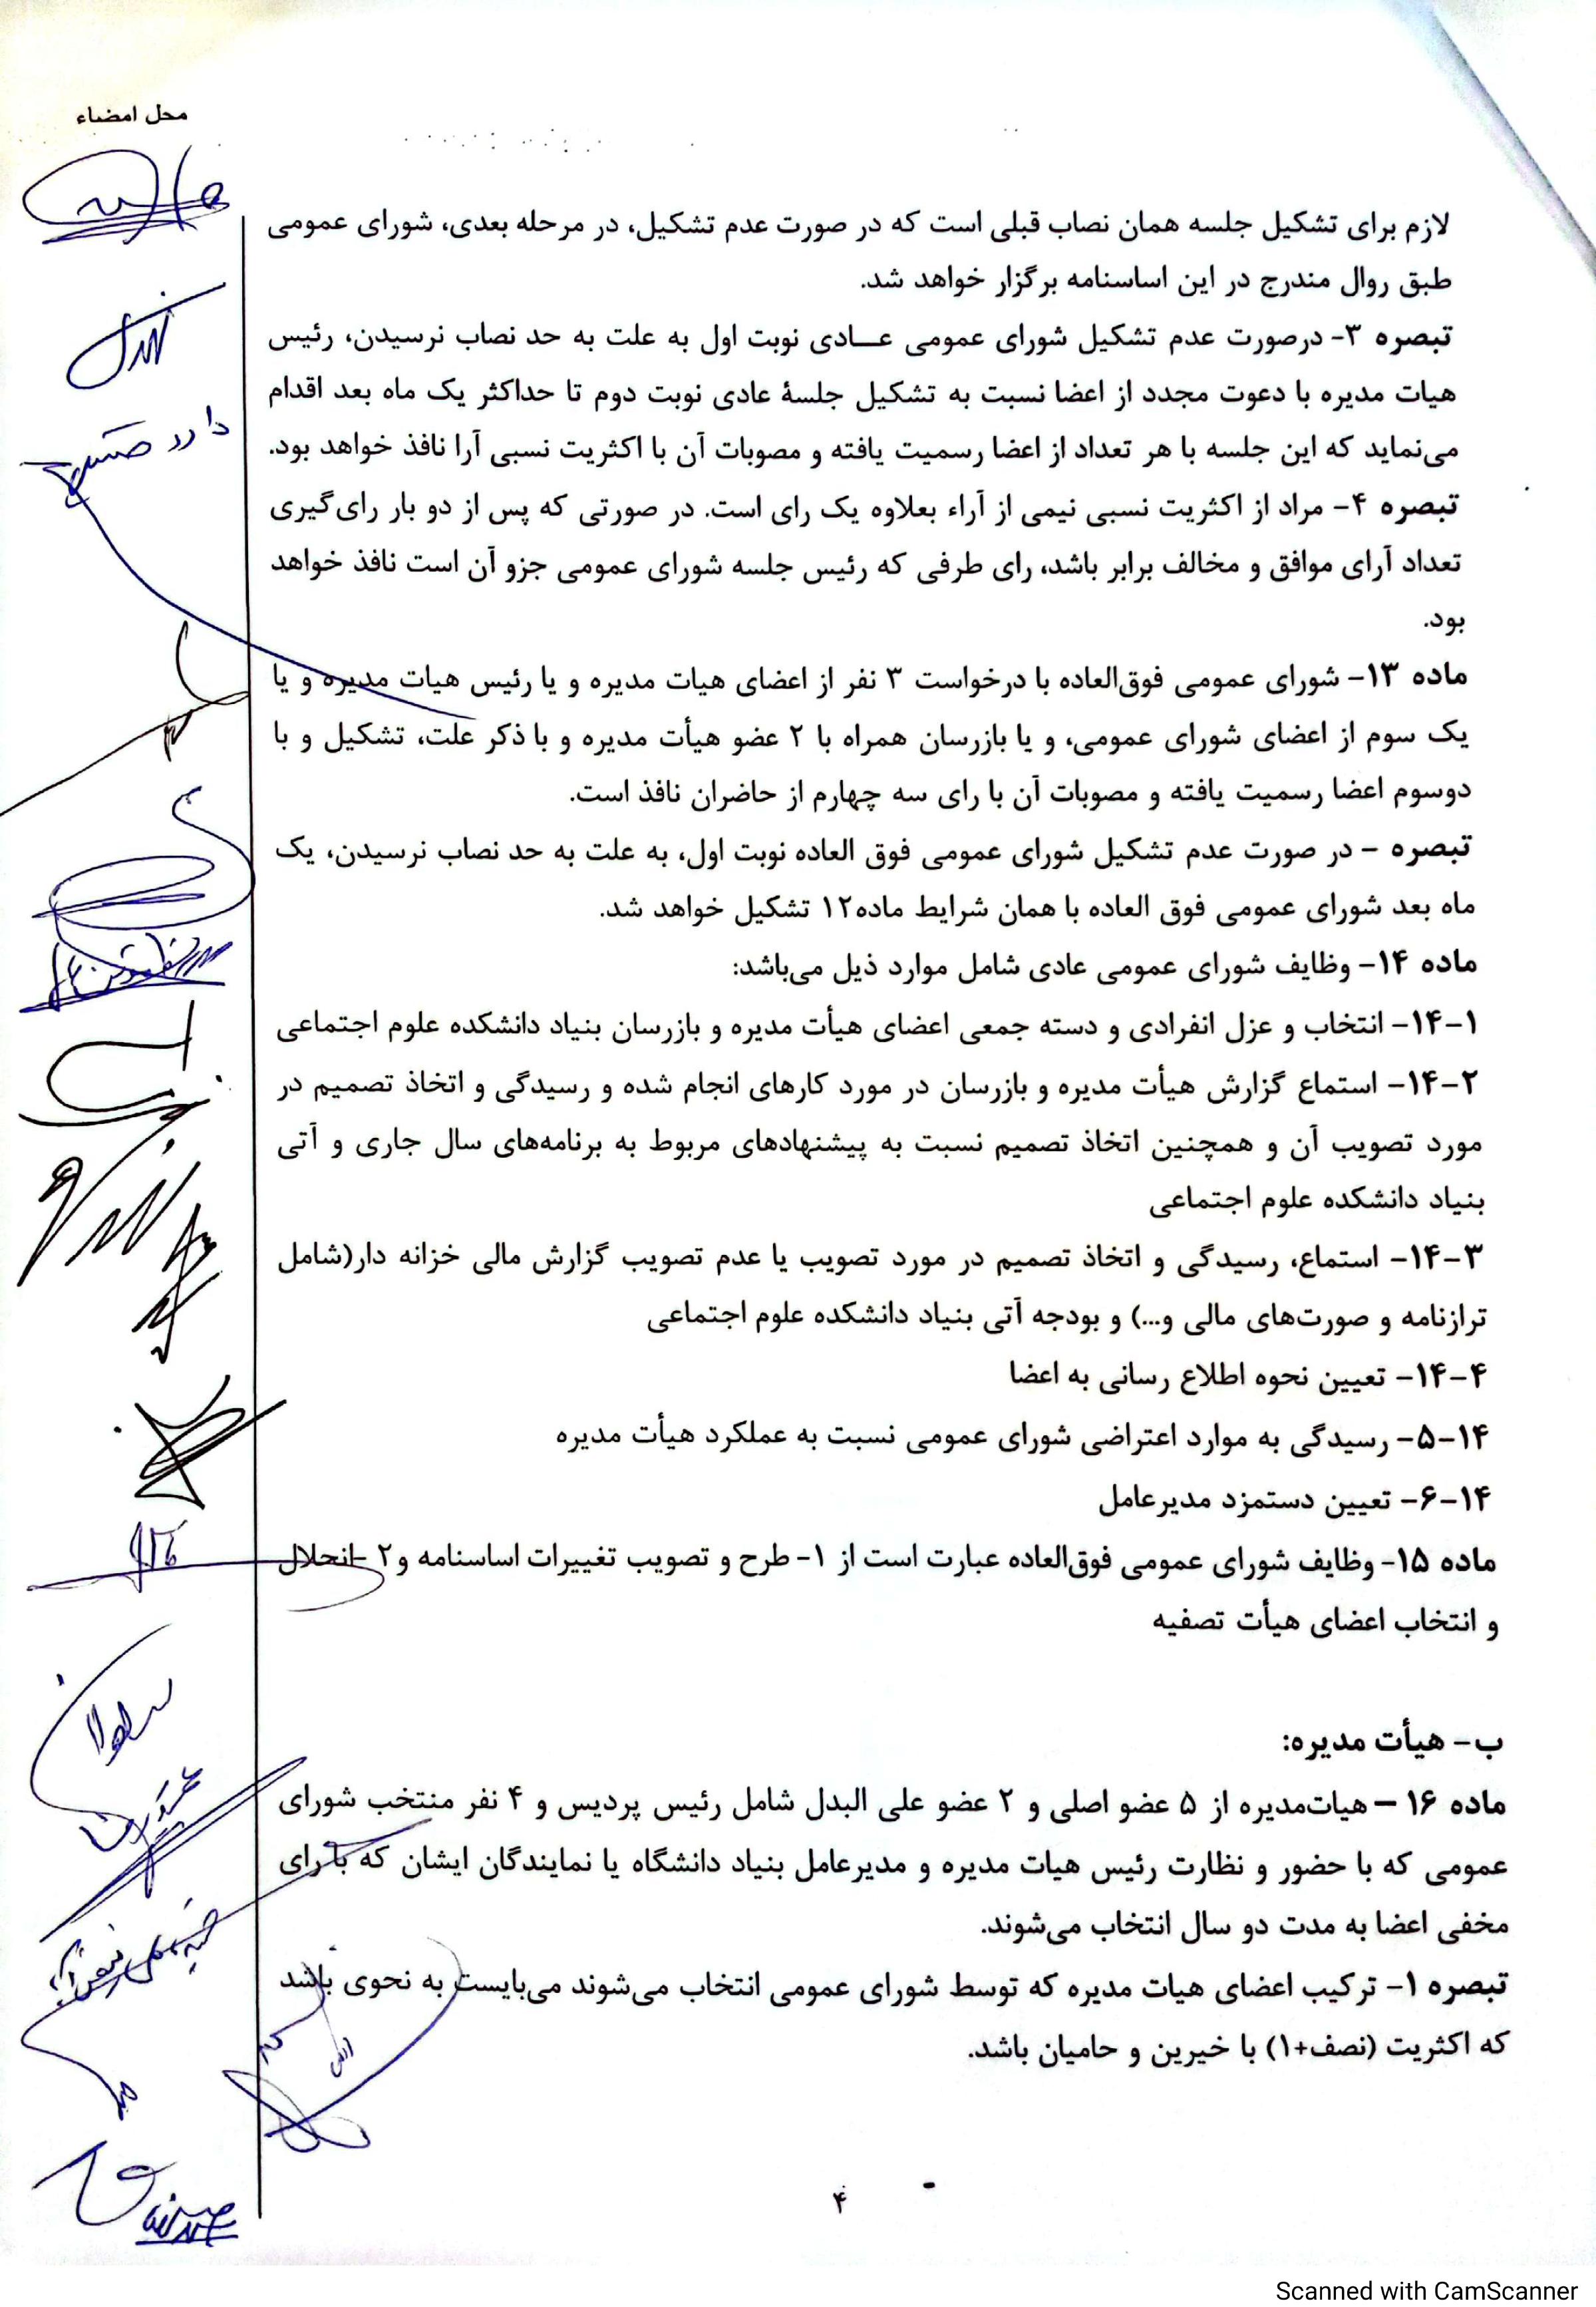 محل امضاء
لازم برای تشکیل جلسه همان نصاب قبلی است که در صورت عدم تشکیل، در مرحله بعدی، شورای عمومی
طبق روال مندرج در این اساسنامه برگزار خواهد شد.
تبصره ۳- درصورت عدم تشکیل شورای عمومی عـــادی نوبت اول به علت به حد نصاب نرسیدن، رئیس
هیات مدیره با دعوت مجدد از اعضا نسبت به تشکیل جلسۀ عادی نوبت دوم تا حداکثر یک ماه بعد اقدام
می‌نماید که این جلسه با هر تعداد از اعضا رسمیت یافته و مصوبات آن با اکثریت نسبی آرا نافذ خواهد بود.
تبصره ۴- مراد از اکثریت نسبی نیمی از آراء بعلاوه یک رای است. در صورتی که پس از دو بار رای‌گیری
تعداد آرای موافق و مخالف برابر باشد، رای طرفی که رئیس جلسه شورای عمومی جزو آن است نافذ خواهد
بود.
ماده ۱۳- شورای عمومی فوق‌العاده با درخواست ۳ نفر از اعضای هیات مدیره و یا رئیس هیات مدیره و یا
یک سوم از اعضای شورای عمومی، و یا بازرسان همراه با ۲ عضو هیأت مدیره و با ذکر علت، تشکیل و با
دوسوم اعضا رسمیت یافته و مصوبات آن با رای سه چهارم از حاضران نافذ است.
تبصره - در صورت عدم تشکیل شورای عمومی فوق العاده نوبت اول، به علت به حد نصاب نرسیدن، یک
ماه بعد شورای عمومی فوق العاده با همان شرایط ماده۱۲ تشکیل خواهد شد.
ماده ۱۴- وظایف شورای عمومی عادی شامل موارد ذیل می‌باشد:
۱-۱۴- انتخاب و عزل انفرادی و دسته جمعی اعضای هیأت مدیره و بازرسان بنیاد دانشکده علوم اجتماعی
۲-۱۴- استماع گزارش هیأت مدیره و بازرسان در مورد کارهای انجام شده و رسیدگی و اتخاذ تصمیم در
مورد تصویب آن و همچنین اتخاذ تصمیم نسبت به پیشنهادهای مربوط به برنامه‌های سال جاری و آتی
بنیاد دانشکده علوم اجتماعی
۳-۱۴- استماع، رسیدگی و اتخاذ تصمیم در مورد تصویب یا عدم تصویب گزارش مالی خزانه دار(شامل
ترازنامه و صورت‌های مالی و...) و بودجه آتی بنیاد دانشکده علوم اجتماعی
۴-۱۴- تعیین نحوه اطلاع رسانی به اعضا
۱۴-۵- رسیدگی به موارد اعتراضی شورای عمومی نسبت به عملکرد هیأت مدیره
۱۴-۶- تعیین دستمزد مدیرعامل
ماده ۱۵- وظایف شورای عمومی فوق‌العاده عبارت است از ۱- طرح و تصویب تغییرات اساسنامه و۲ -انحلال
و انتخاب اعضای هیأت تصفیه
ب- هیأت مدیره:
ماده ۱۶ – هیات‌مدیره از ۵ عضو اصلی و ۲ عضو علی البدل شامل رئیس پردیس و ۴ نفر منتخب شورای
عمومی که با حضور و نظارت رئیس هیات مدیره و مدیرعامل بنیاد دانشگاه یا نمایندگان ایشان که با رای
مخفی اعضا به مدت دو سال انتخاب می‌شوند.
تبصره ۱- ترکیب اعضای هیات مدیره که توسط شورای عمومی انتخاب می‌شوند می‌بایست به نحوی باشد
که اکثریت (نصف+۱) با خیرین و حامیان باشد.
۴
Scanned with CamScanner